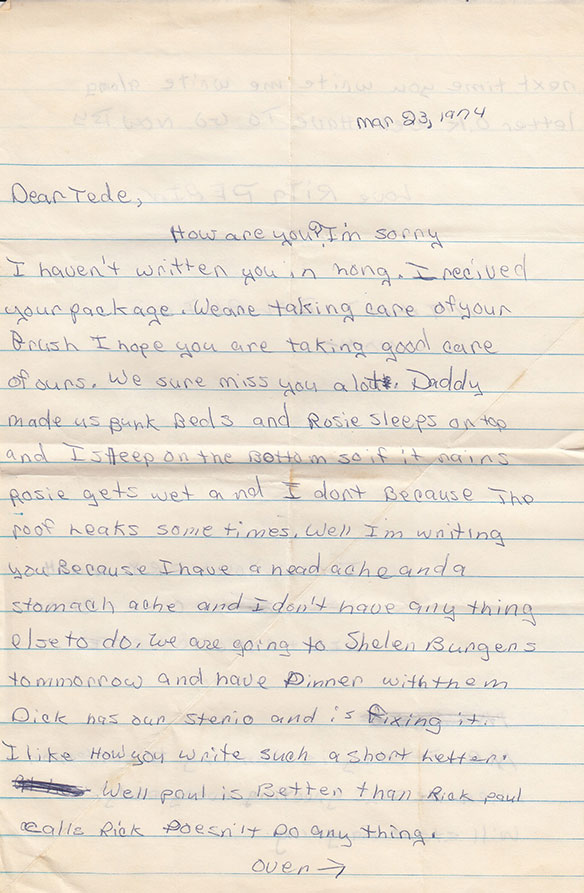 mar 23, 1974
Dear Tede,
How are you? I'm sorry
I haven't written you in nong. I recived
your package. We are taking care of your
Brush I hope you are taking good care
of ours. We sure miss you a lot. Daddy
made us bunk Beds and Rosie sleeps on top
and I sleep on the Bottom so if it rains
Rosie gets wet and I dont Because The
roof Leaks some times. Well I'm writing
you Because I have a head ache and a
stomach ache and I don't have any thing
else to do. We are going to Shelen Burgers
tommorrow and have Dinner with them
Dick has our sterio and is Fixing it.
I like How you write such a short Letter.
Well paul is Better than Rick paul
calls Rick Doesn't Do any thing.
over →
next time you write me write along
letter O.K. Have To Go Now
Love Rita